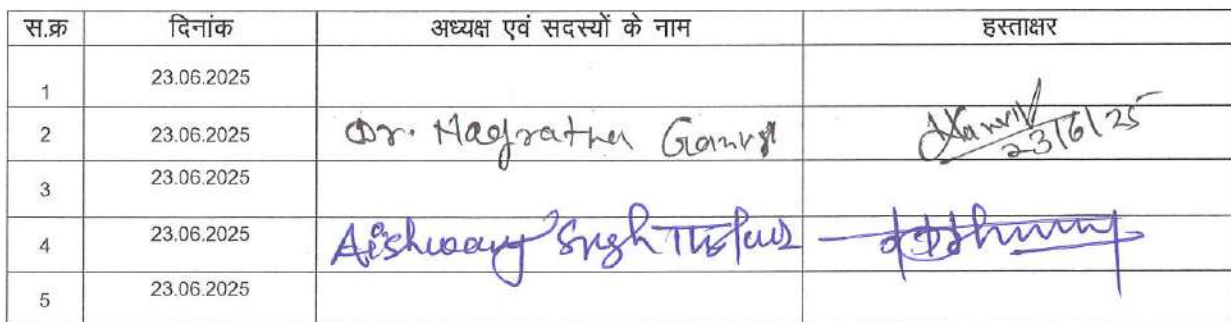 स.क्र दिनांक अध्यक्ष एवं सदस्यों के नाम हस्ताक्षर
1 23.06.2025
2 23.06.2025 Dr. Nagratna Ganvir 23/6/25
3 23.06.2025
4 23.06.2025 Aishwary Singh
5 23.06.2025